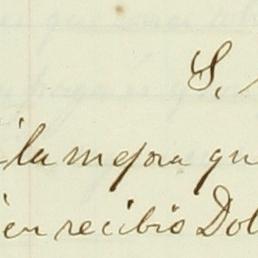 S.
la mejora qu
en recibio Dol